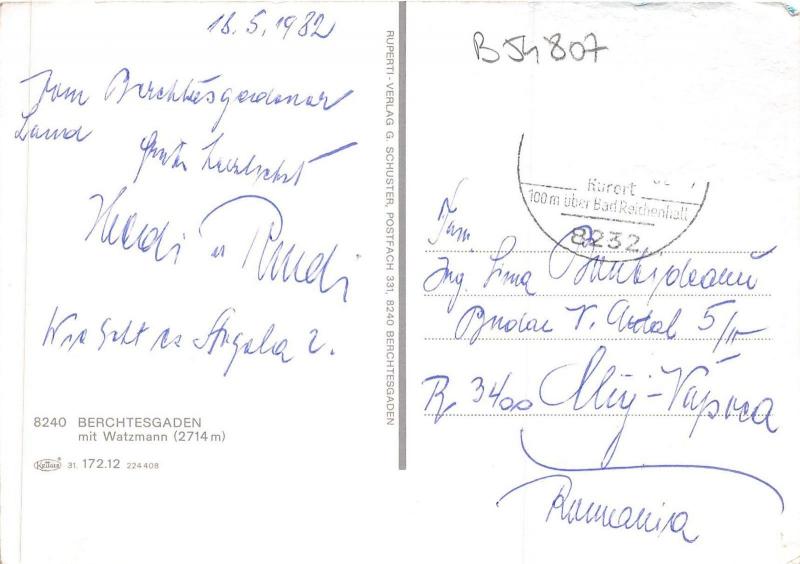 18.5.1982
Vom Berchtesgadener
Land
Heidi u Rudi
Wie geht es
8240 BERCHTESGADEN
mit Watzmann (2714 m)
31. 172.12 224408
RUPERTI-VERLAG G. SCHUSTER, POSTFACH 331, 8240 BERCHTESGADEN
B 54807
Kurort
100 m über Bad Reichenhall
8232
Fam.
Ing.
V. 5/
R 3400 Cluj-Napoca
Romania